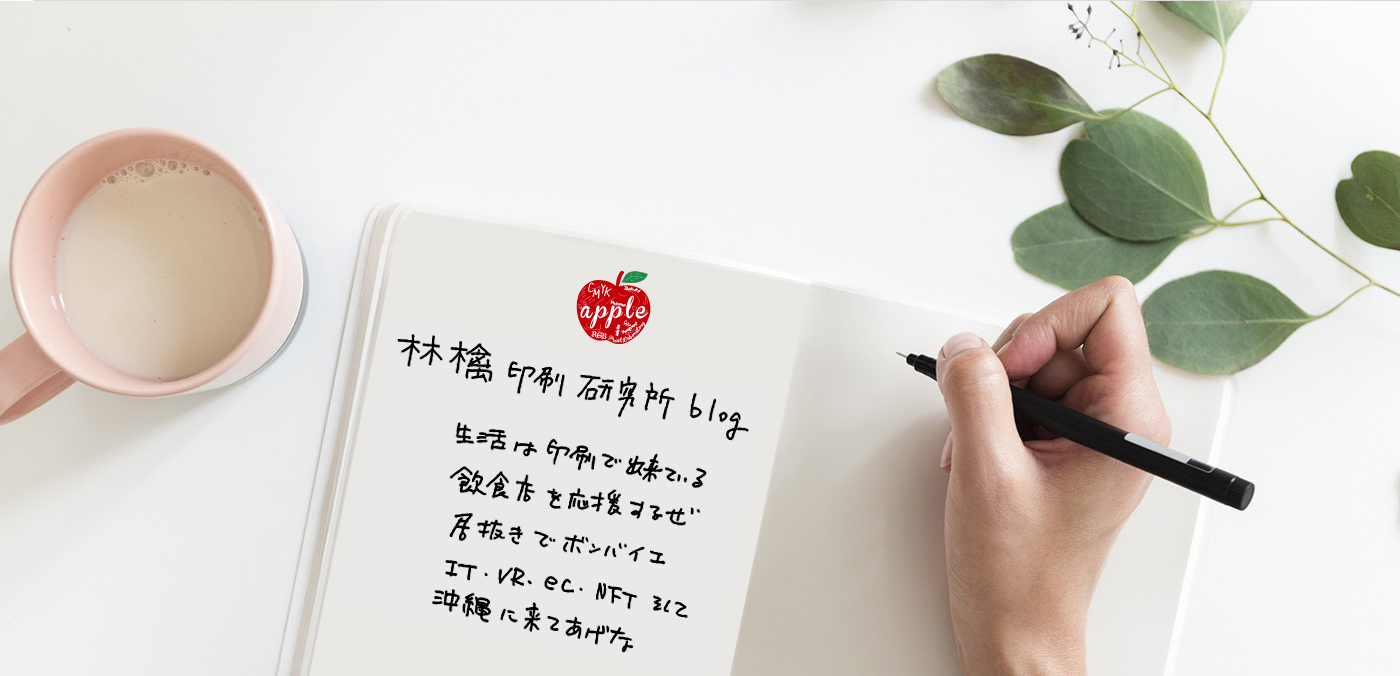 CMYK
apple
RGB
林檎印刷研究所 blog
生活は印刷で出来ている
飲食店を応援するぜ
居抜きでボンバイエ
IT・VR・eC・NFT そして
沖縄に来てあげな